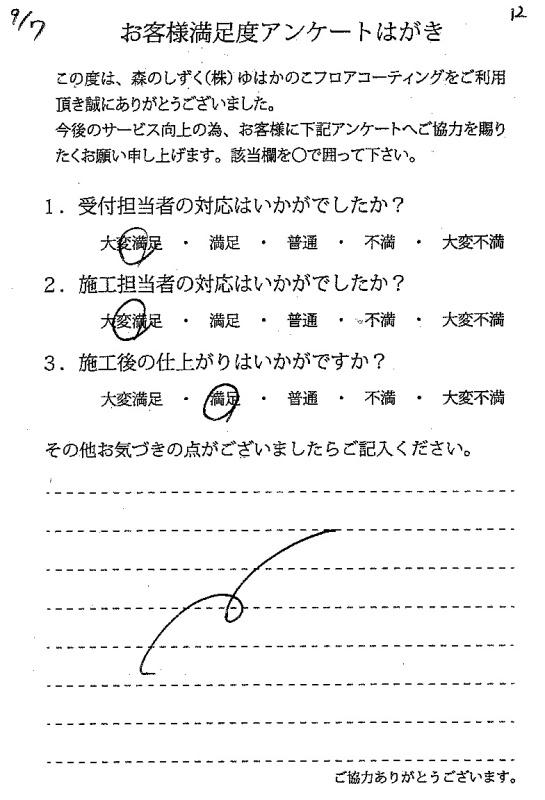 9/7
12
お客様満足度アンケートはがき
この度は、森のしずく(株)ゆはかのこフロアコーティングをご利用
頂き誠にありがとうございました。
今後のサービス向上の為、お客様に下記アンケートへご協力を賜り
たくお願い申し上げます。該当欄を○で囲って下さい。
1．受付担当者の対応はいかがでしたか？
大変満足 ・ 満足 ・ 普通 ・ 不満 ・ 大変不満
2．施工担当者の対応はいかがでしたか？
大変満足 ・ 満足 ・ 普通 ・ 不満 ・ 大変不満
3．施工後の仕上がりはいかがですか？
大変満足 ・ 満足 ・ 普通 ・ 不満 ・ 大変不満
その他お気づきの点がございましたらご記入ください。
ご協力ありがとうございます。